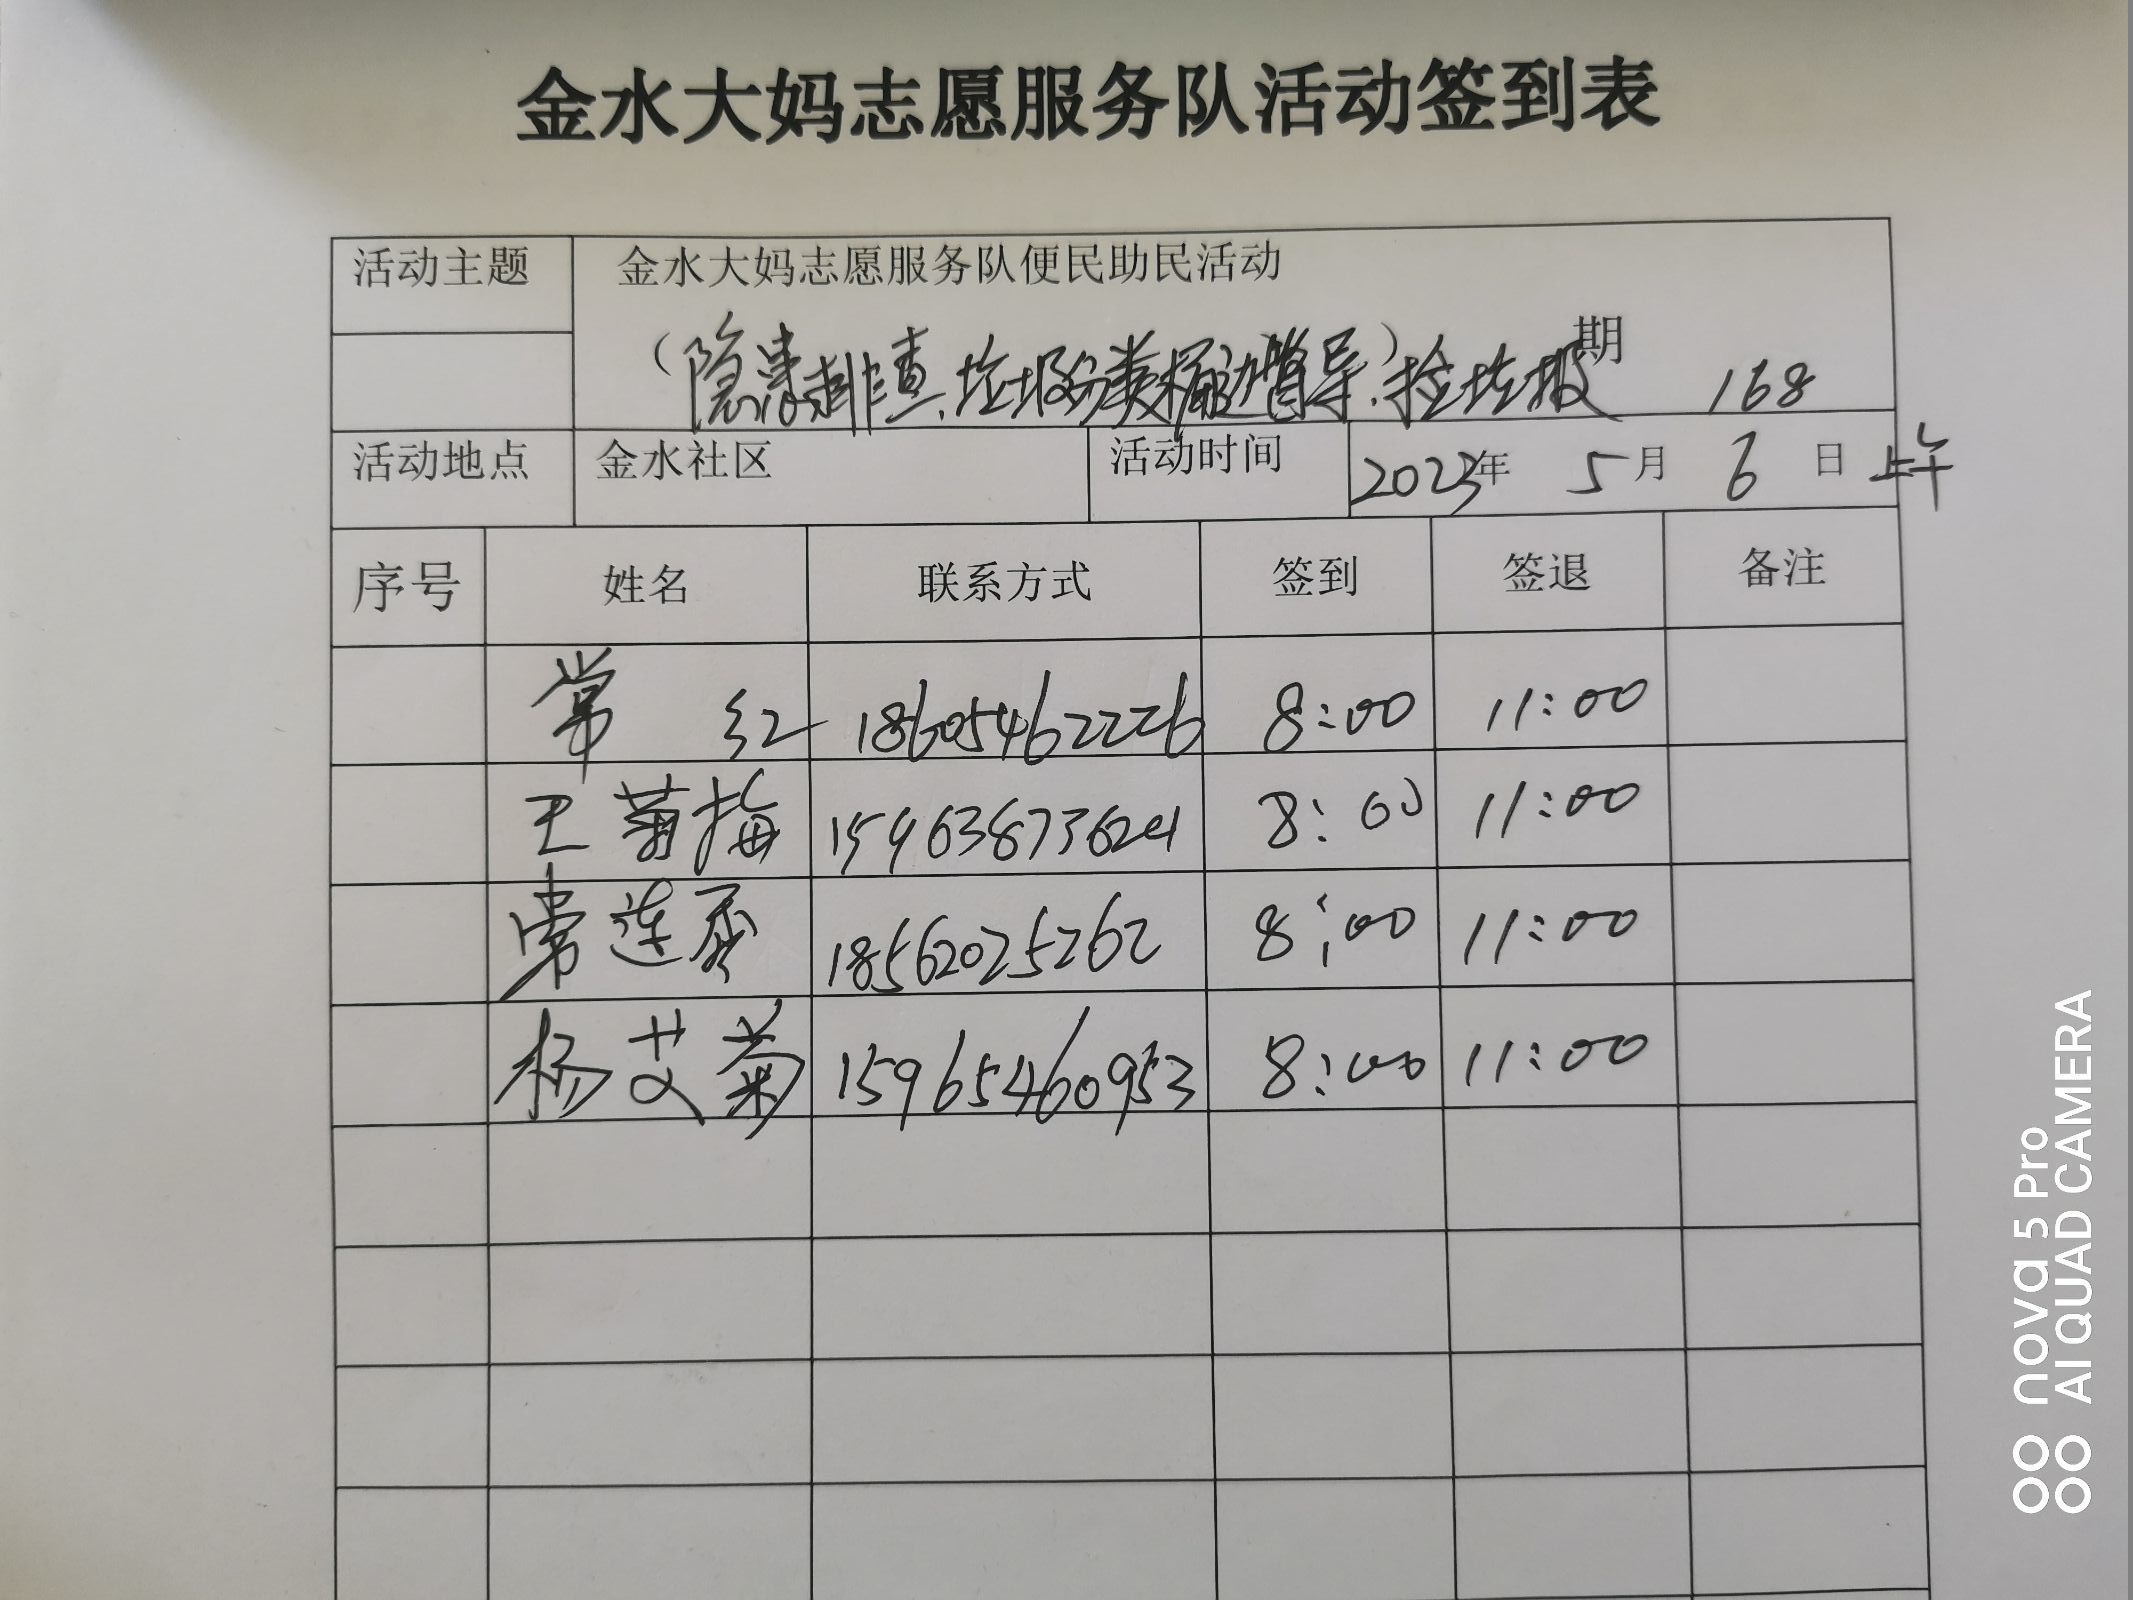 金水大妈志愿服务队活动签到表
活动主题 金水大妈志愿服务队便民助民活动
（隐患排查、垃圾分类桶边督导）、捡垃圾 期 168
活动地点 金水社区 活动时间 2023年 5月 6日 上午
序号 姓名 联系方式 签到 签退 备注
常 红 18605462226 8:00 11:00
王菊梅 8:00 11:00
常莲 18562025262 8:00 11:00
杨艾菊 15965460953 8:00 11:00
nova 5 Pro
AI QUAD CAMERA